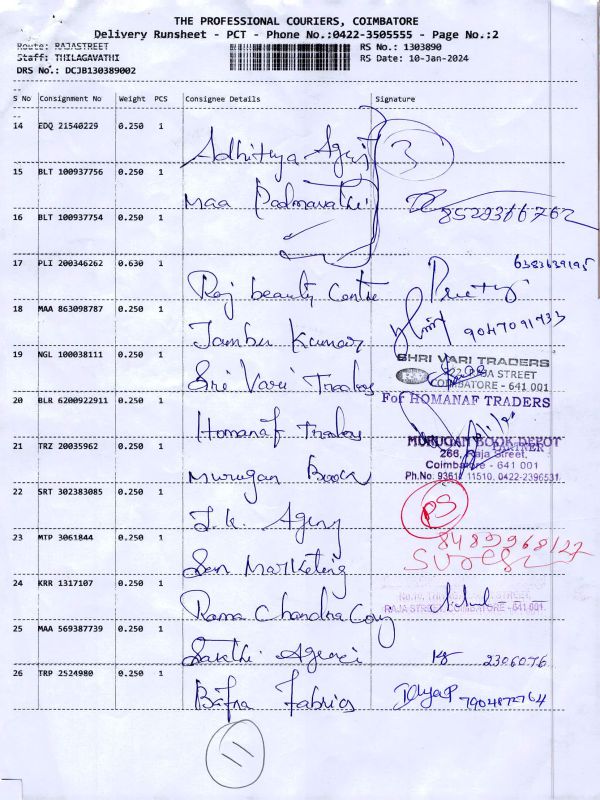 THE PROFESSIONAL COURIERS, COIMBATORE
Delivery Runsheet - PCT - Phone No.:0422-3505555 - Page No.:2
Route: RAJASTREET
Staff: THILAGAVATHI
DRS No.: DCJB130389002
RS No.: 1303890
RS Date: 10-Jan-2024
S No Consignment No Weight PCS Consignee Details Signature
14 EDQ 21540229 0.250 1 Adhithya Agency 3
15 BLT 100937756 0.250 1 Maa Padmavathi 8529366762
16 BLT 100937754 0.250 1
17 PLI 200346262 0.630 1 Raj beauty Centre Preethy 6383639195
18 MAA 863098787 0.250 1 Jambu Kumar 9047091933
19 NGL 100038111 0.250 1 Sri Vari Traders SHRI VARI TRADERS
RAJA STREET
COIMBATORE - 641 001
20 BLR 6200922911 0.250 1 Homanaf Traders For HOMANAF TRADERS
PARTNER
21 TRZ 20035962 0.250 1 Murugan Book MURUGAN BOOK DEPOT
266, Raja Street,
Coimbatore - 641 001
Ph.No. 93612 11510, 0422-2396531
22 SRT 302383085 0.250 1 J.K. Agency PS
23 MTP 3061844 0.250 1 Sen Marketing 8489968127
Suresh
24 KRR 1317107 0.250 1 Rama Chandra Coy
RAJA STREET, COIMBATORE - 641 001.
25 MAA 569387739 0.250 1 Sakthi Agenci 2306076
26 TRP 2524980 0.250 1 Bafna Fabrics Divya P 7904872764
11